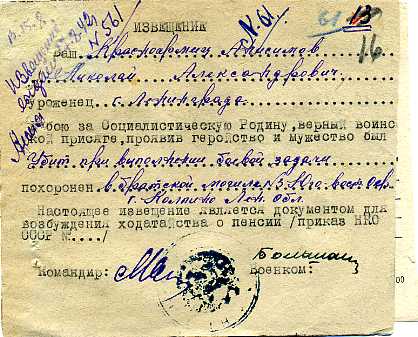 ИЗВЕЩЕНИЕ
N 561
N 61
61
13
16
Ваш Красноармеец Анисимов
Николай Александрович.
уроженец г. Ленинграда
бою за Социалистическую Родину, верный воинс
кой присяге, проявив геройство и мужество был
Убит при выполнении боевой задачи
похоронен в братской могиле N 3
г. Колпино Лен. Обл.
Настоящее извещение является документом для
возбуждения ходатайства о пенсии /приказ НКО
СССР №..../
Командир:
военком: